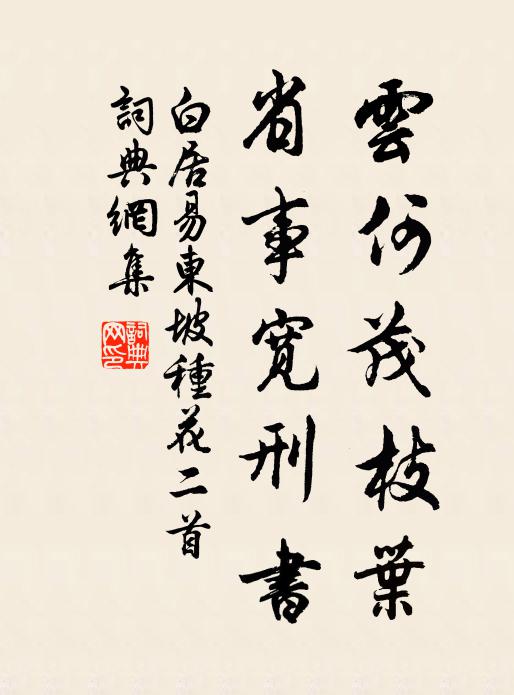 雲何茂枝葉
省事寬刑書
白居易東坡種花二首
詞典網集
詞典網印